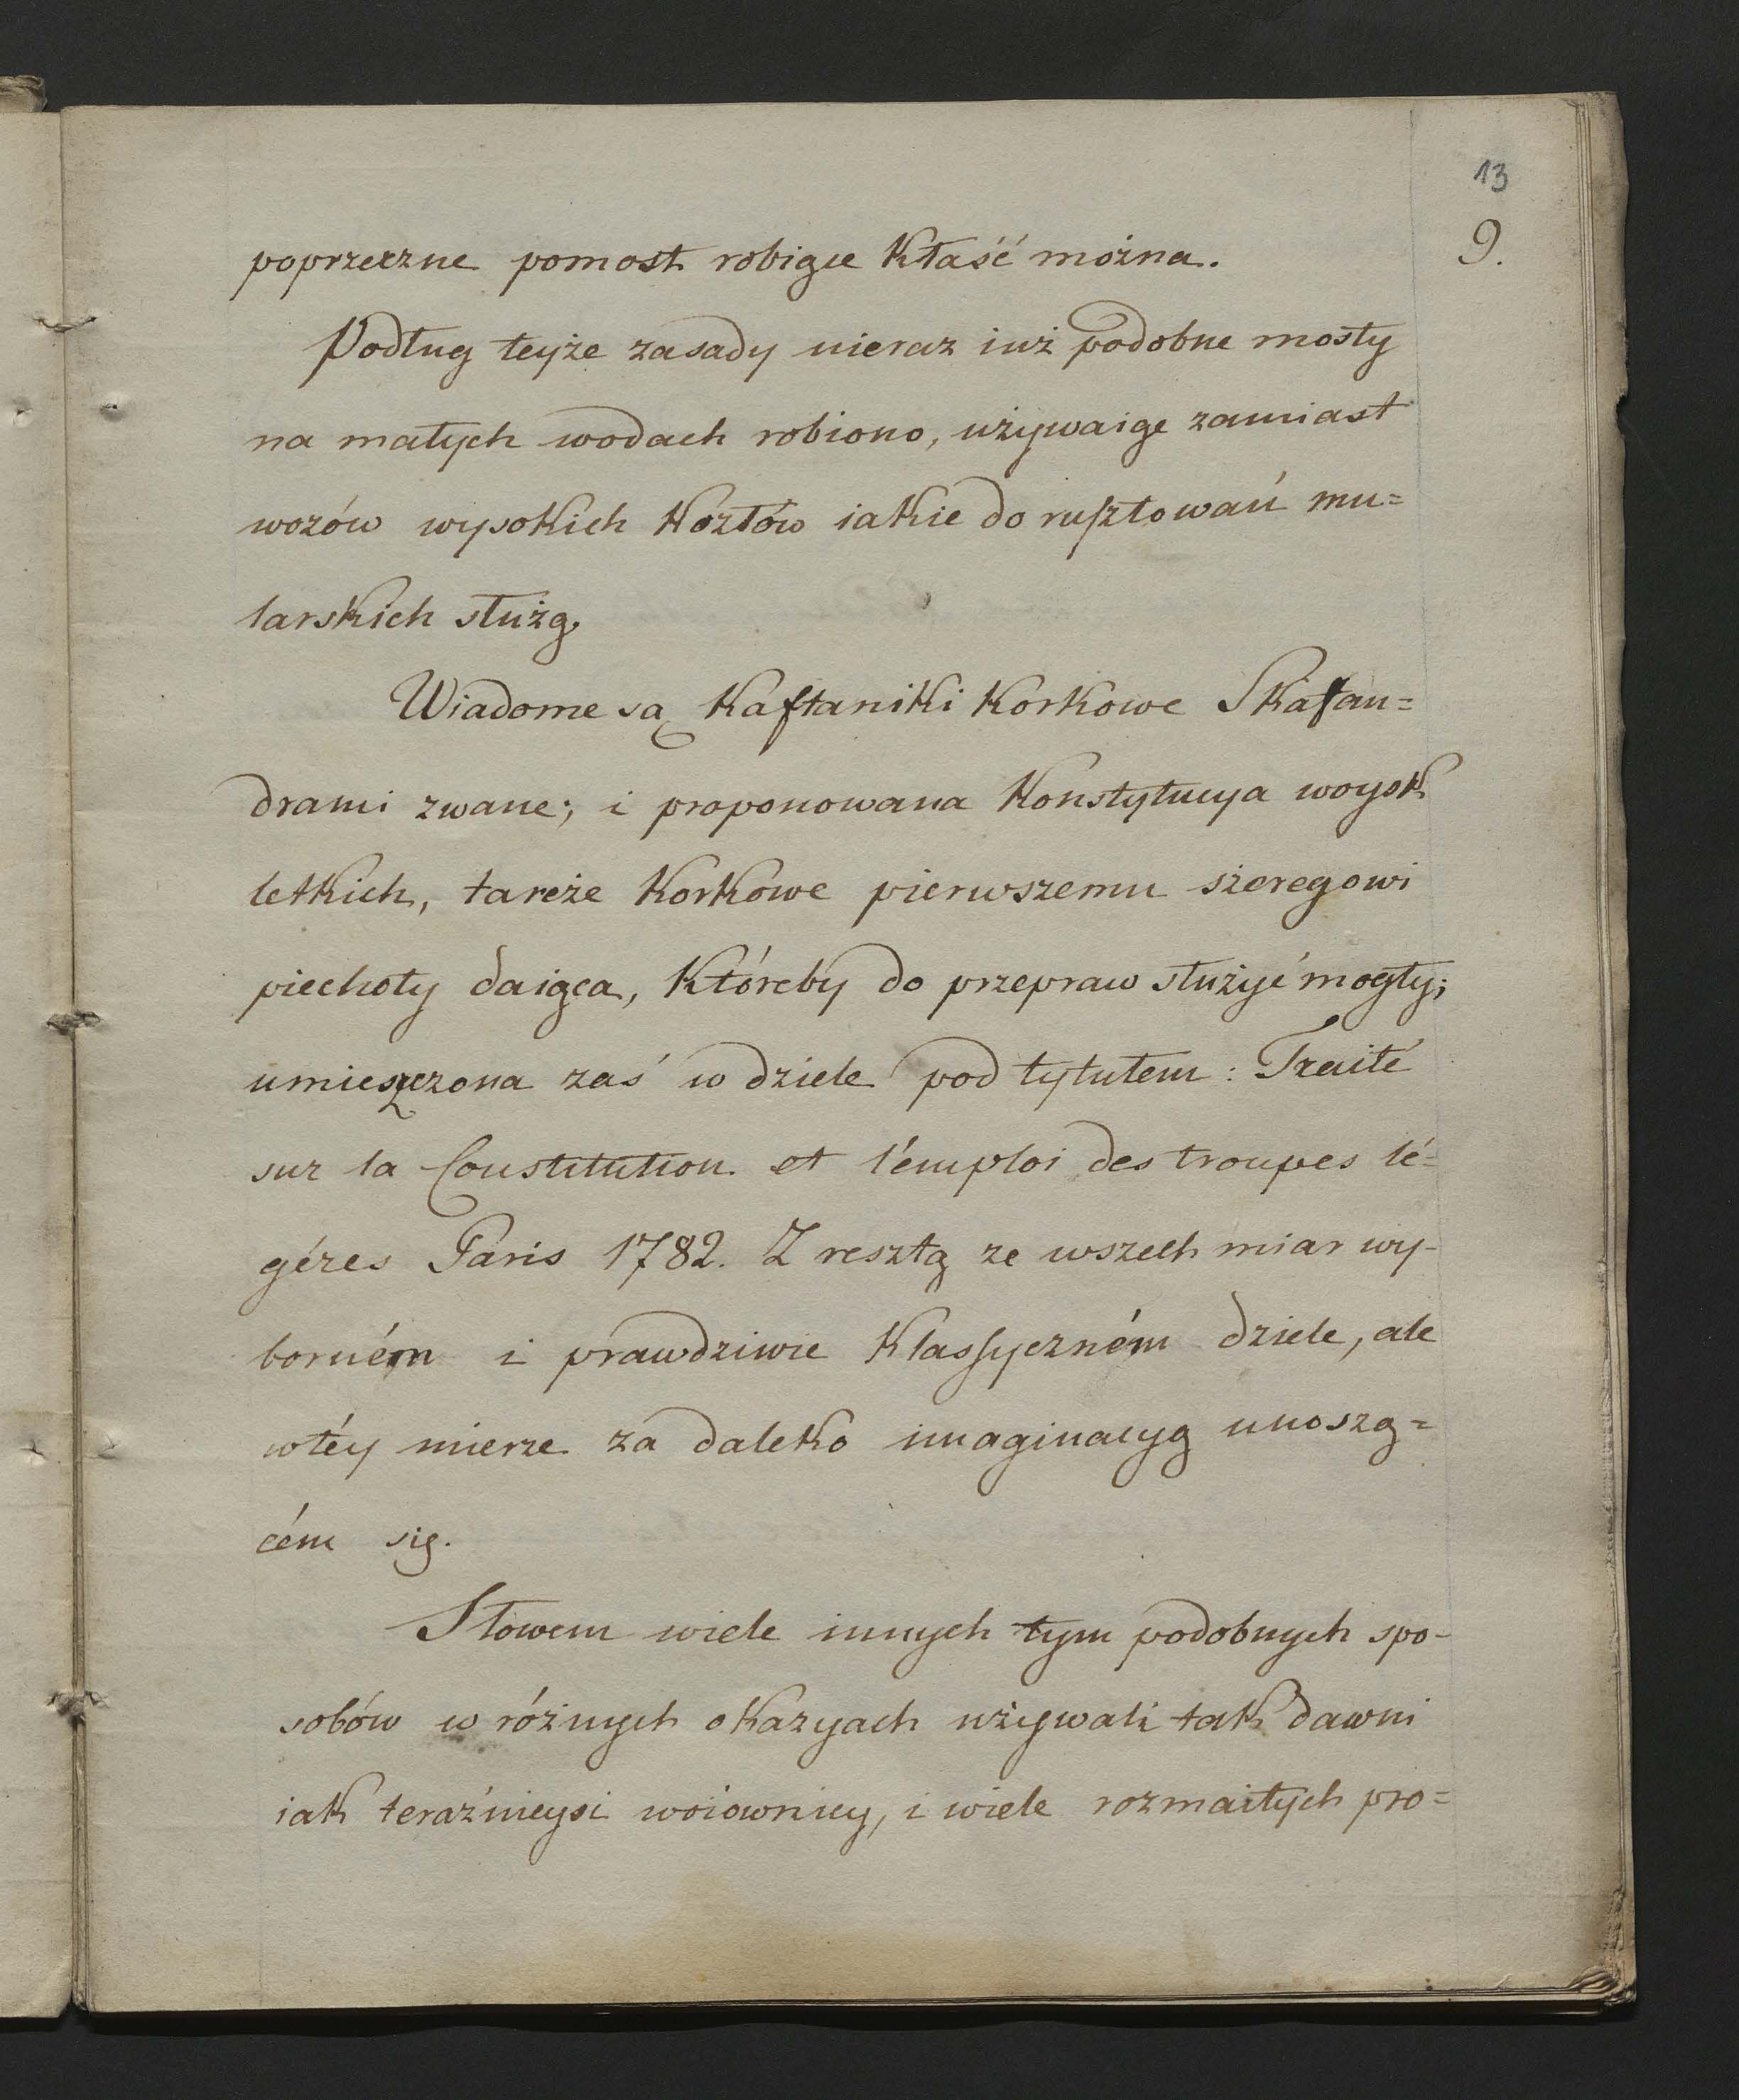 13
9.
poprzeczne pomost robiące kłaść można.
Podług teyże zasady nieraz iuż podobne mosty
na małych wodach robiono, używaiąc zamiast
wozów wysokich kozłów iakie do rusztowań mu=
larskich służą.
Wiadome są kaftaniki korkowe Skafan=
drami zwane; i proponowana konstytucya woysk
letkich, tarcze korkowe pierwszemu szeregowi
piechoty daiąca, któreby do przepraw służyć mogły;
umieszczona zaś w dziele pod tytułem: Traité
sur la Constitution et l'émploi des troupes lé=
géres Paris 1782. Z resztą ze wszech miar wy-
borném i prawdziwie klassyczném dziele, ale
w téy mierze za daleko imaginacyą unoszą=
cém się.
Słowem wiele innych tym podobnych spo-
sobów w różnych okazyach używali tak dawni
iak teraźnieysi woiownicy, i wiele rozmaitych pro=